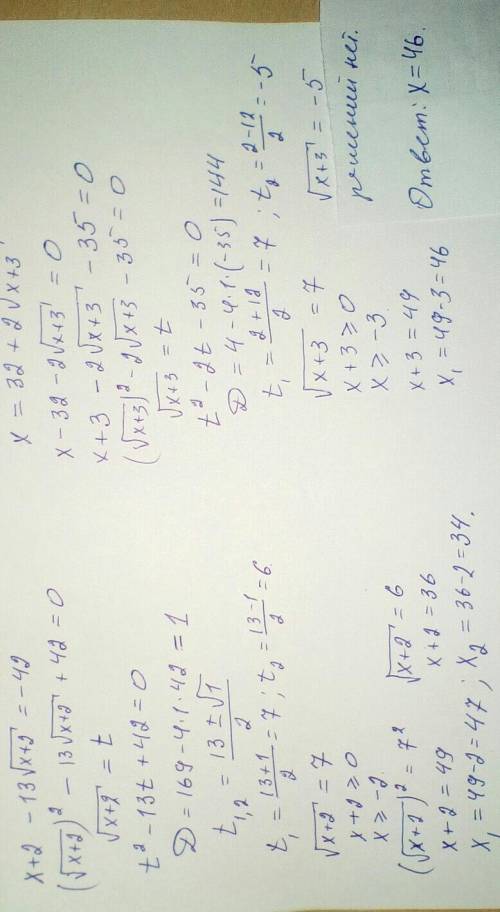 x+2 -13√x+2 = -42
(√x+2)² - 13√x+2 + 42 = 0
√x+2 = t
t² - 13t + 42 = 0
D = 169 - 4·1·42 = 1
t₁,₂ = (13 ± √1)/2
t₁ = (13+1)/2 = 7 ; t₂ = (13-1)/2 = 6
√x+2 = 7
x+2 ≥ 0
x ≥ -2
(√x+2)² = 7² √x+2 = 6
x+2 = 49 x+2 = 36
x₁ = 49-2 = 47 ; x₂ = 36-2 = 34.
x = 32 + 2√x+3
x - 32 - 2√x+3 = 0
x+3 - 2√x+3 - 35 = 0
(√x+3)² - 2√x+3 - 35 = 0
√x+3 = t
t² - 2t - 35 = 0
D = 4 - 4·1·(-35) = 144
t₁ = (2+12)/2 = 7 ; t₂ = (2-12)/2 = -5
√x+3 = 7 √x+3 = -5
x+3 ≥ 0 решений нет.
x ≥ -3
x+3 = 49
x₁ = 49-3 = 46
Ответ: x = 46.